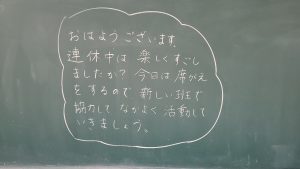 おはようございます。
連休中は楽しくすごし
ましたか？今日は席がえ
をするので新しい班で
協力してなかよく活動して
いきましょう。